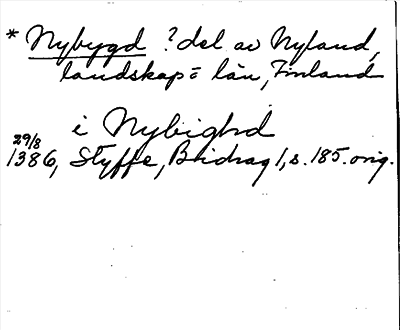 * Nybygd ? del av Nyland,
landskap = län, Finland
i Nybighd
29/8
1386, Styffe, Bidrag 1, s. 185. orig.